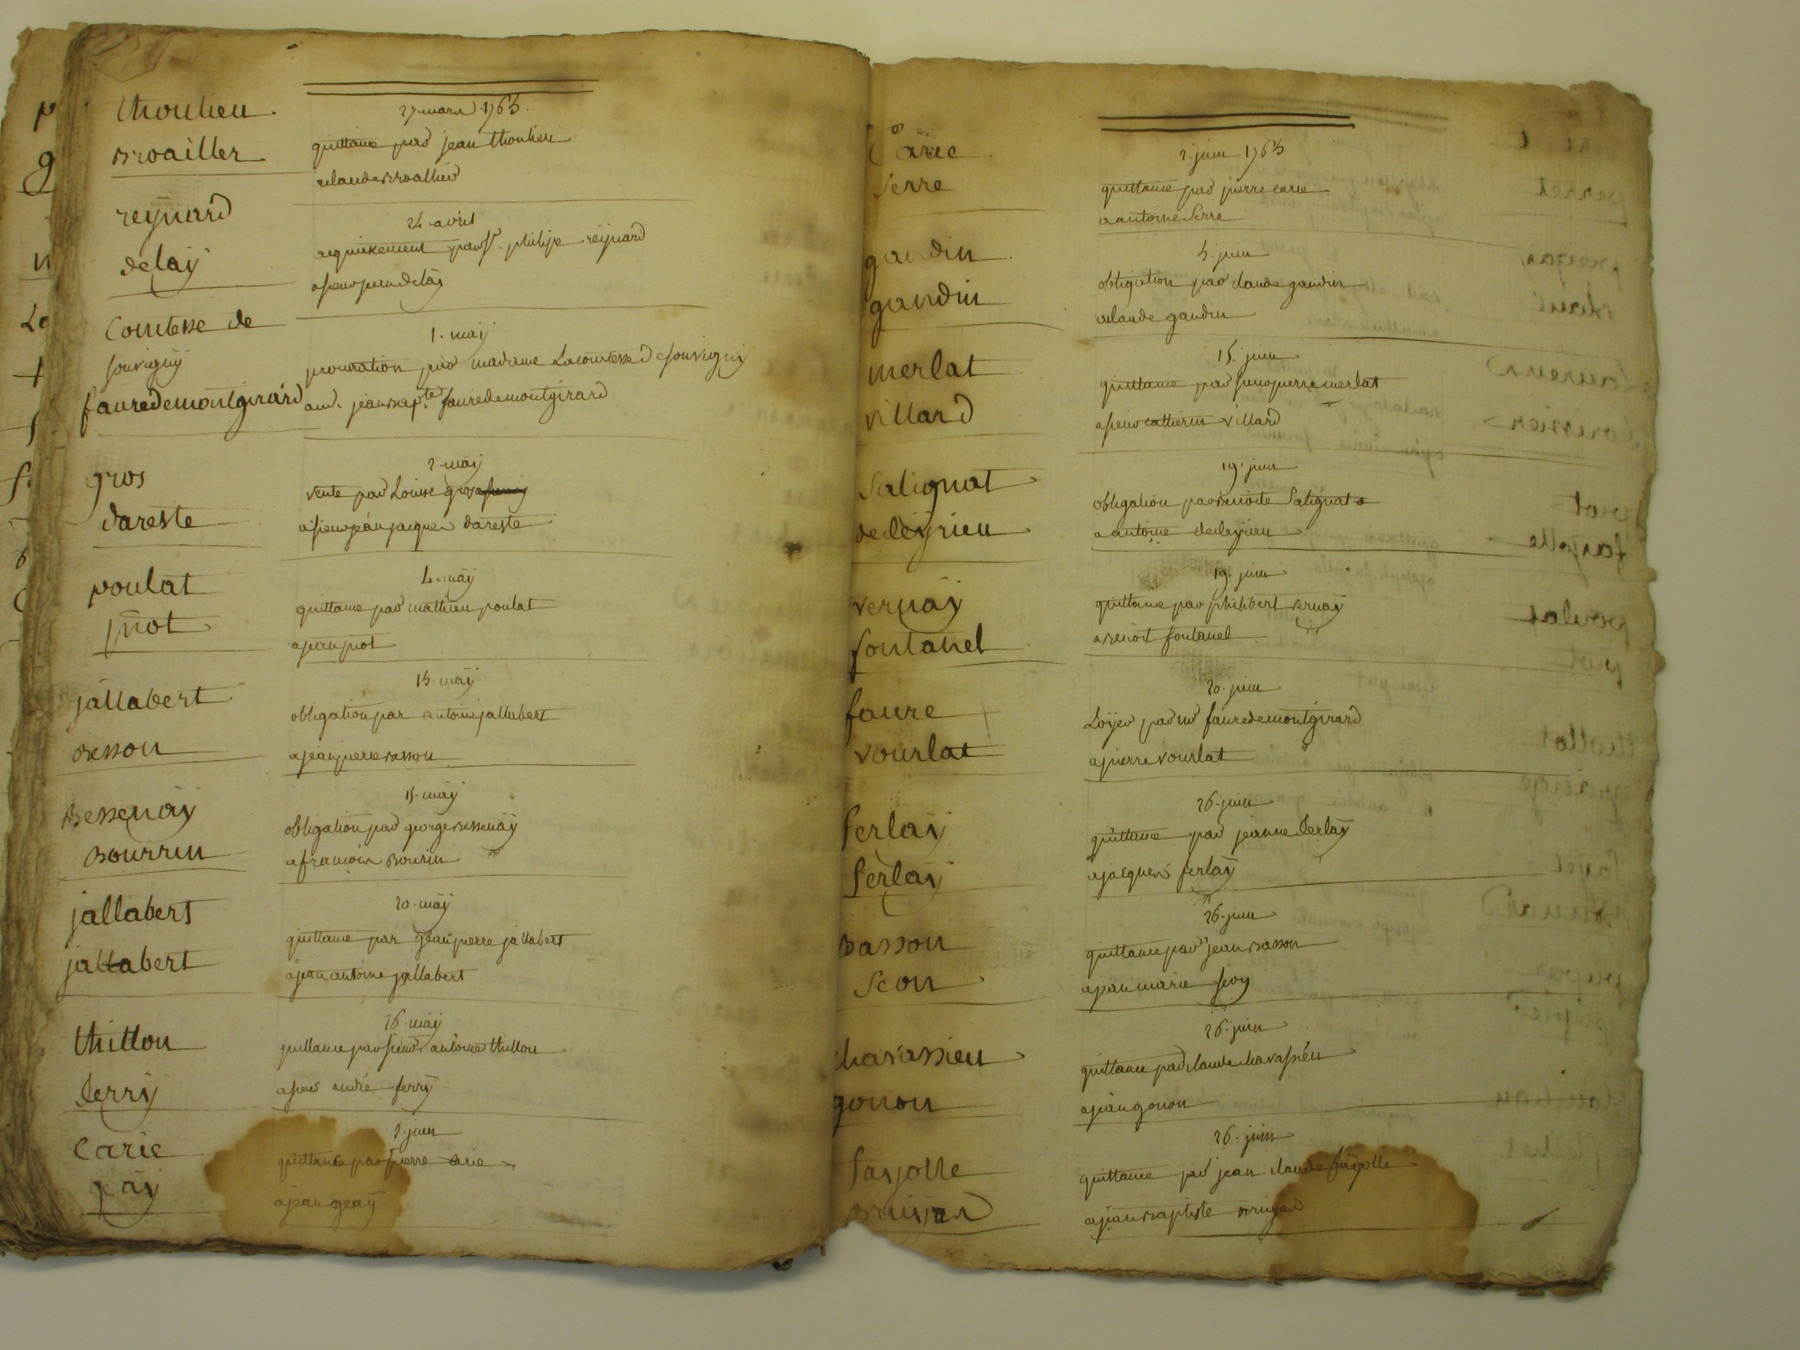 thoulieu
broailler
27 mars 1763
quittance par jean thoulieu
a claude broallier
reÿnard
delaÿ
24 avril
acquiexement par sr. philipe reÿnard
a sieur jean delaÿ
Comtesse de
souvignÿ
fauredemontgirard
1. maÿ
procuration par madame La comtesse de souvignÿ
a mr. jean bapte. fauredemontgirard
gros
dareste
2 maÿ
vente par Louise gros
a sieur jean jacques dareste
poulat
piot
4. maÿ
quittance par mathieu poulat
a jean piot
jallabert
besson
15. maÿ
obligation par antoine jallabert
a jean pierre basson
bessenaÿ
bourrin
15. maÿ
obligation par george bessenaÿ
a francois bourin
jallabert
jallabert
20. maÿ
quittance par jean pierre jallabert
a jean antoine jallabert
thillon
ferrÿ
26. maÿ
quittance par sieur antoine thillon
a sieur andré ferrÿ
Carie
gaÿ
2. juin
quittance par pierre carie
a jean geaÿ
Carie
Serre
2. juin 1763
quittance par pierre carie
a antoine Serre
gaudin
gaudin
5. juin
obligation par claude gaudin
a claude gaudin
merlat
villard
15. juin
quittance par sieur pierre merlat
a sieur catherin villard
Salignat
deleÿrieu
19. juin
obligation par benoite Salignat
a antoine deleÿrieu
vernaÿ
fontanel
19. juin
quittance par philibert vernaÿ
a benoit fontanel
faure
vourlat
20. juin
Loÿer par mr fauredemontgirard
a pierre vourlat
ferlaÿ
ferlaÿ
26. juin
quittance par jeanne ferlaÿ
a jacques ferlaÿ
basson
Seon
26. juin
quittance par jean basson
a jean marie Seon
chavassieu
gonon
26. juin
quittance par claude chavassieu
a jean gonon
farjolle
bruÿas
26. juin
quittance par jean claude farjolle
a jean baptiste bruÿas